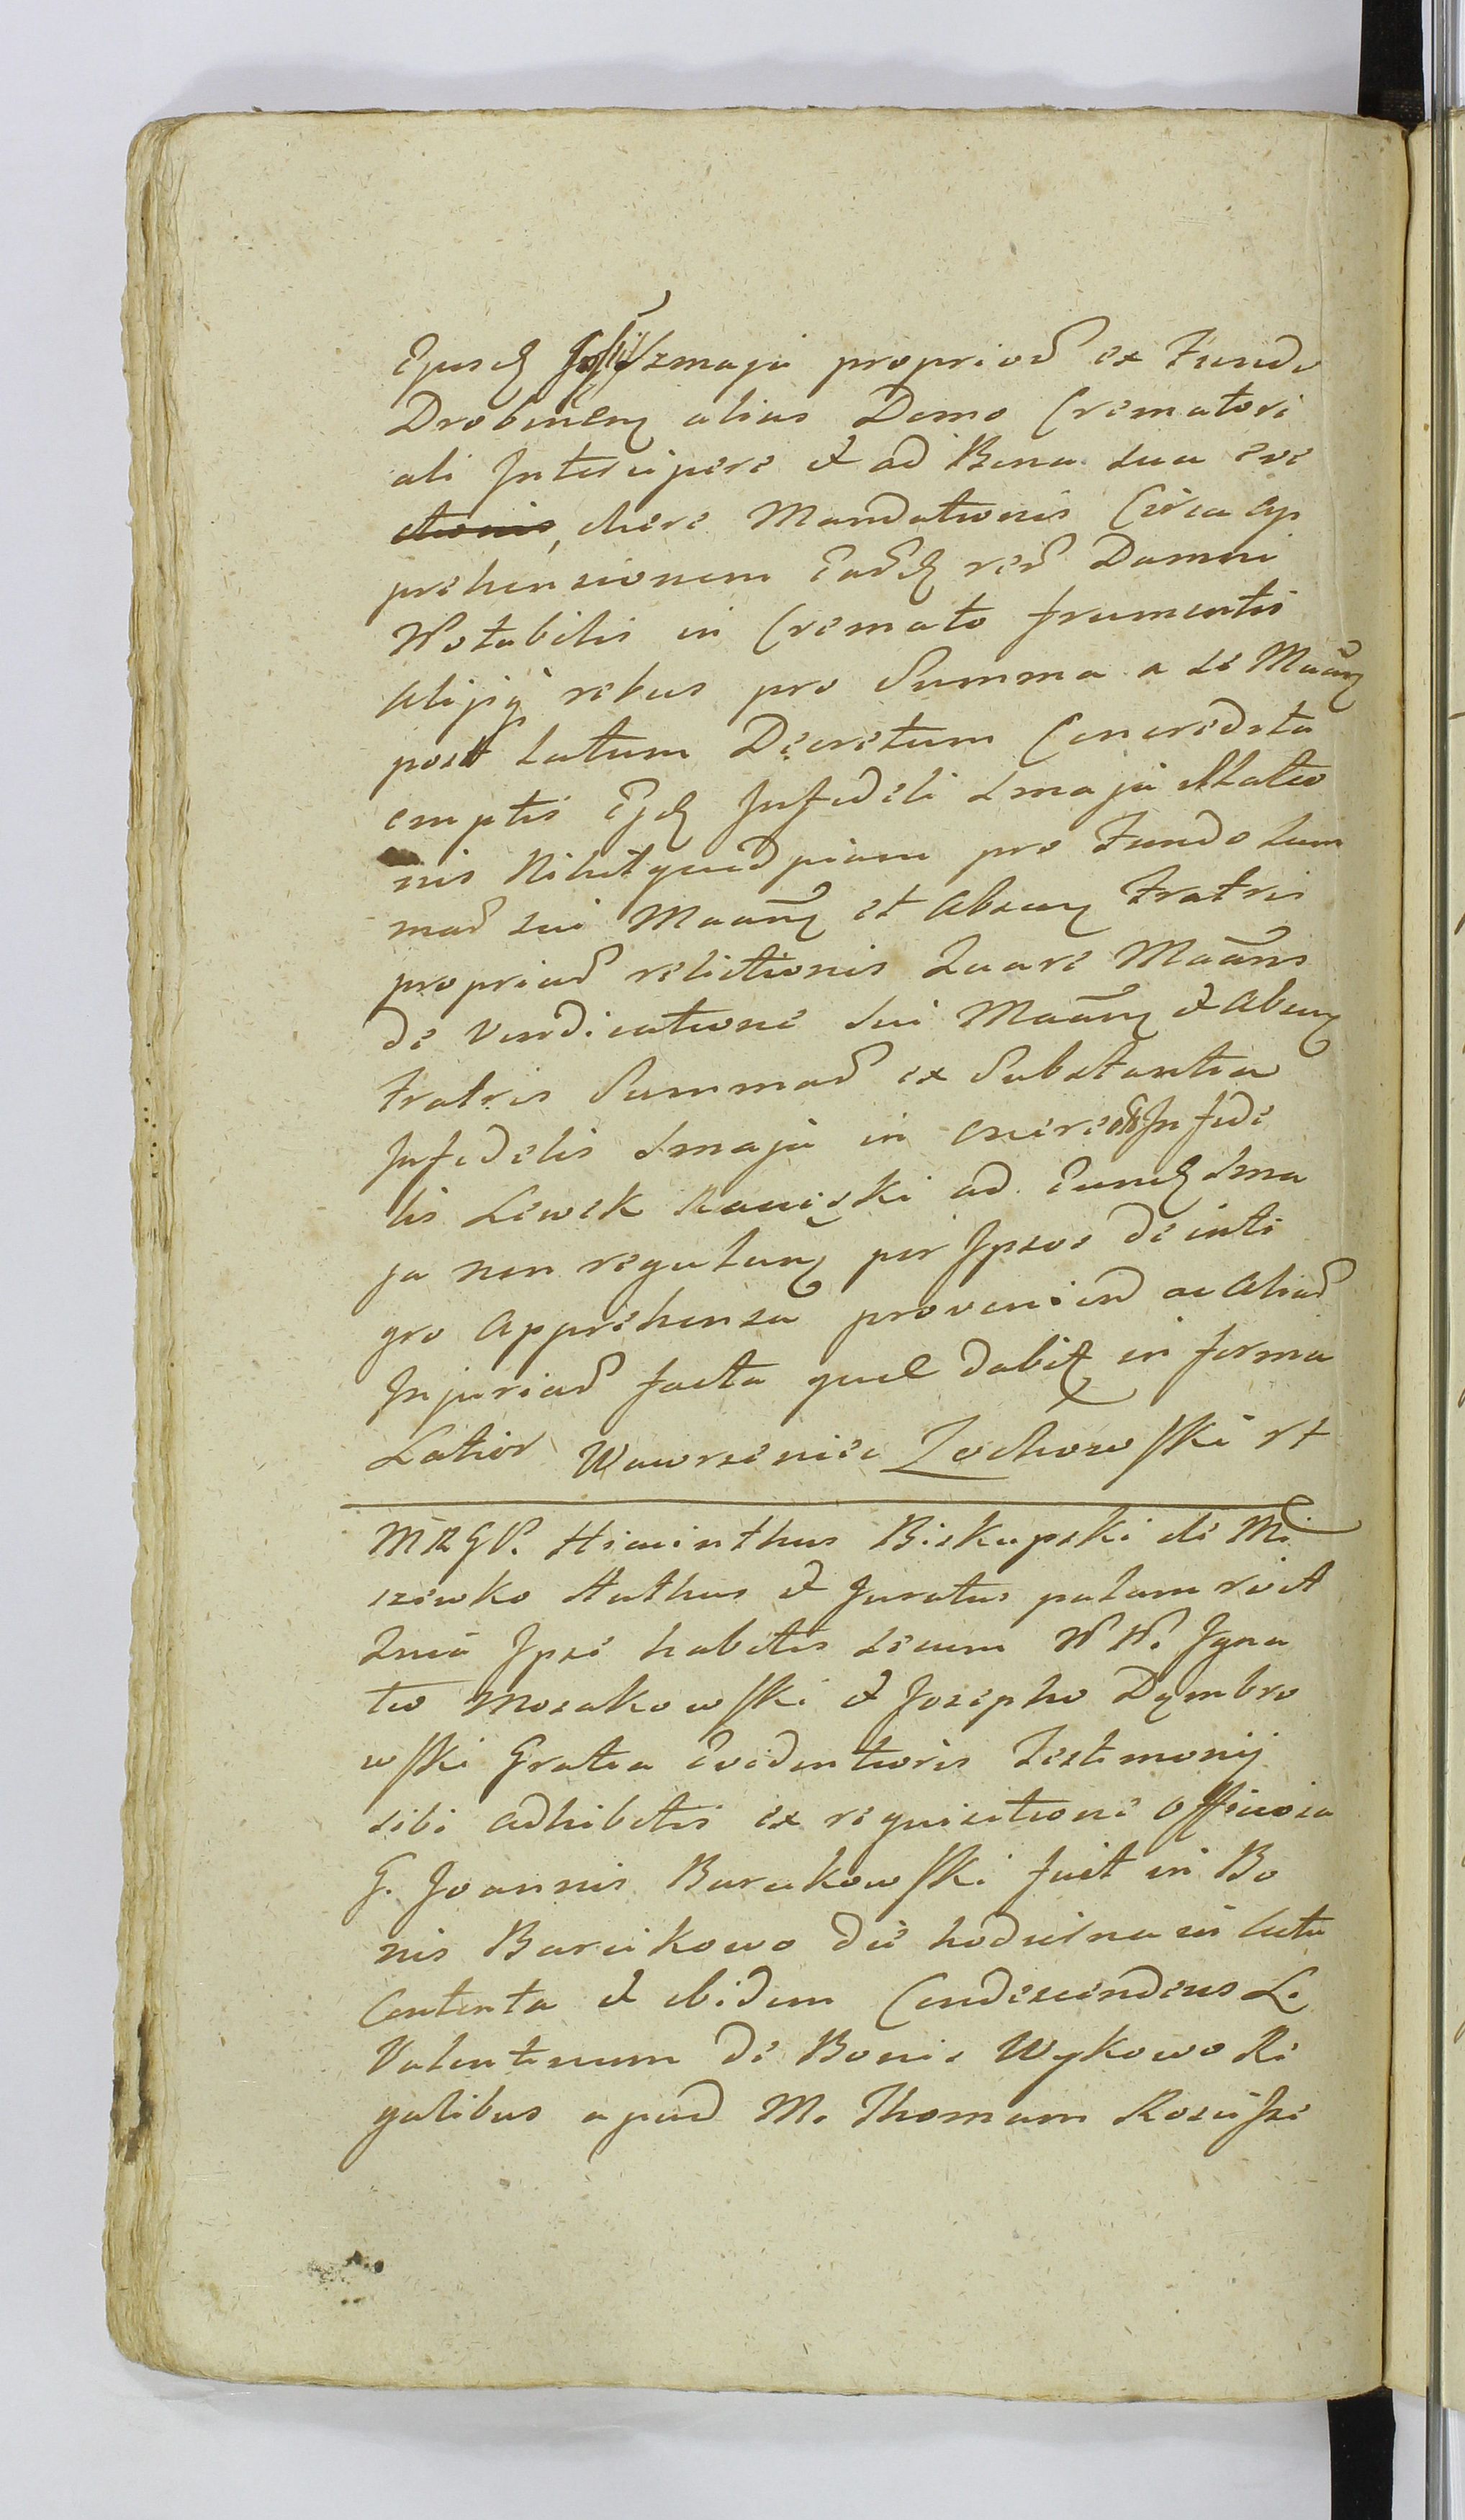 Ejusd Szmaja propriod ex Fundo
Drobinen alias Domo Cremator
ali Intercipere et ad Bona sua eve
chere Mandationis Circa ap
prehensionem Ead red Damni
Notabilis in Cremato frumentis
alijsq rebus pro Summa a se Maan
post latum Decretum Concredita
emptis Ejd Infideli Smaja illatio
nis Nihilquidpiam pro Fundo Sum
mad sui Maan et Absen Fratris
propriad relictionis Quare Maans
de Vindicatione sui Maan et Absen
Fratris Summad ex Substantia
Infidelis Smaja in Infide
lis Lewek Raciski ad Eund Sma
ja non regulan per Ipsos de inte
gro Apprehensa proveniend ac Aliad
Injuriad facta quel dabit in forma
Latior Wawrzeniec Zochowski rt
MRGV. Hiacinthus Biskupski de Mi
szewko Authus et Juratus palam rcit
Quia Ipse habitis secum NN. Igna
tio Mosakowski et Josepho Dymbro
wski Gratia Evidentioris Testimonij
sibi adhibitis ex requisitione Officiosa
G. Joannis Barcikowski fuit in Bo
nis Barcikowo die hodierna in actu
Contenta et ibidem Condescendens L.
Valentinum de Bonis Wykowo Re
galibus apud M. Thomam Roscisze